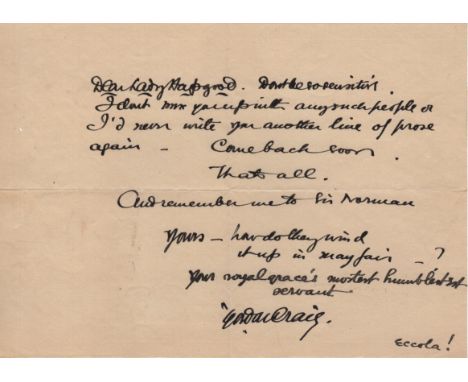 Dear Lady Hapgood. Dont be so sensitive.
I dont mix you up with any such people or
I'd never write you another line of prose
again — Come back soon.
Thats all.
And remember me to Sir Norman
Yours — how do they wind
it up in Mayfair — ?
Your royal grace's mostest humblest
servant
Gordon Craig.
Eccola!